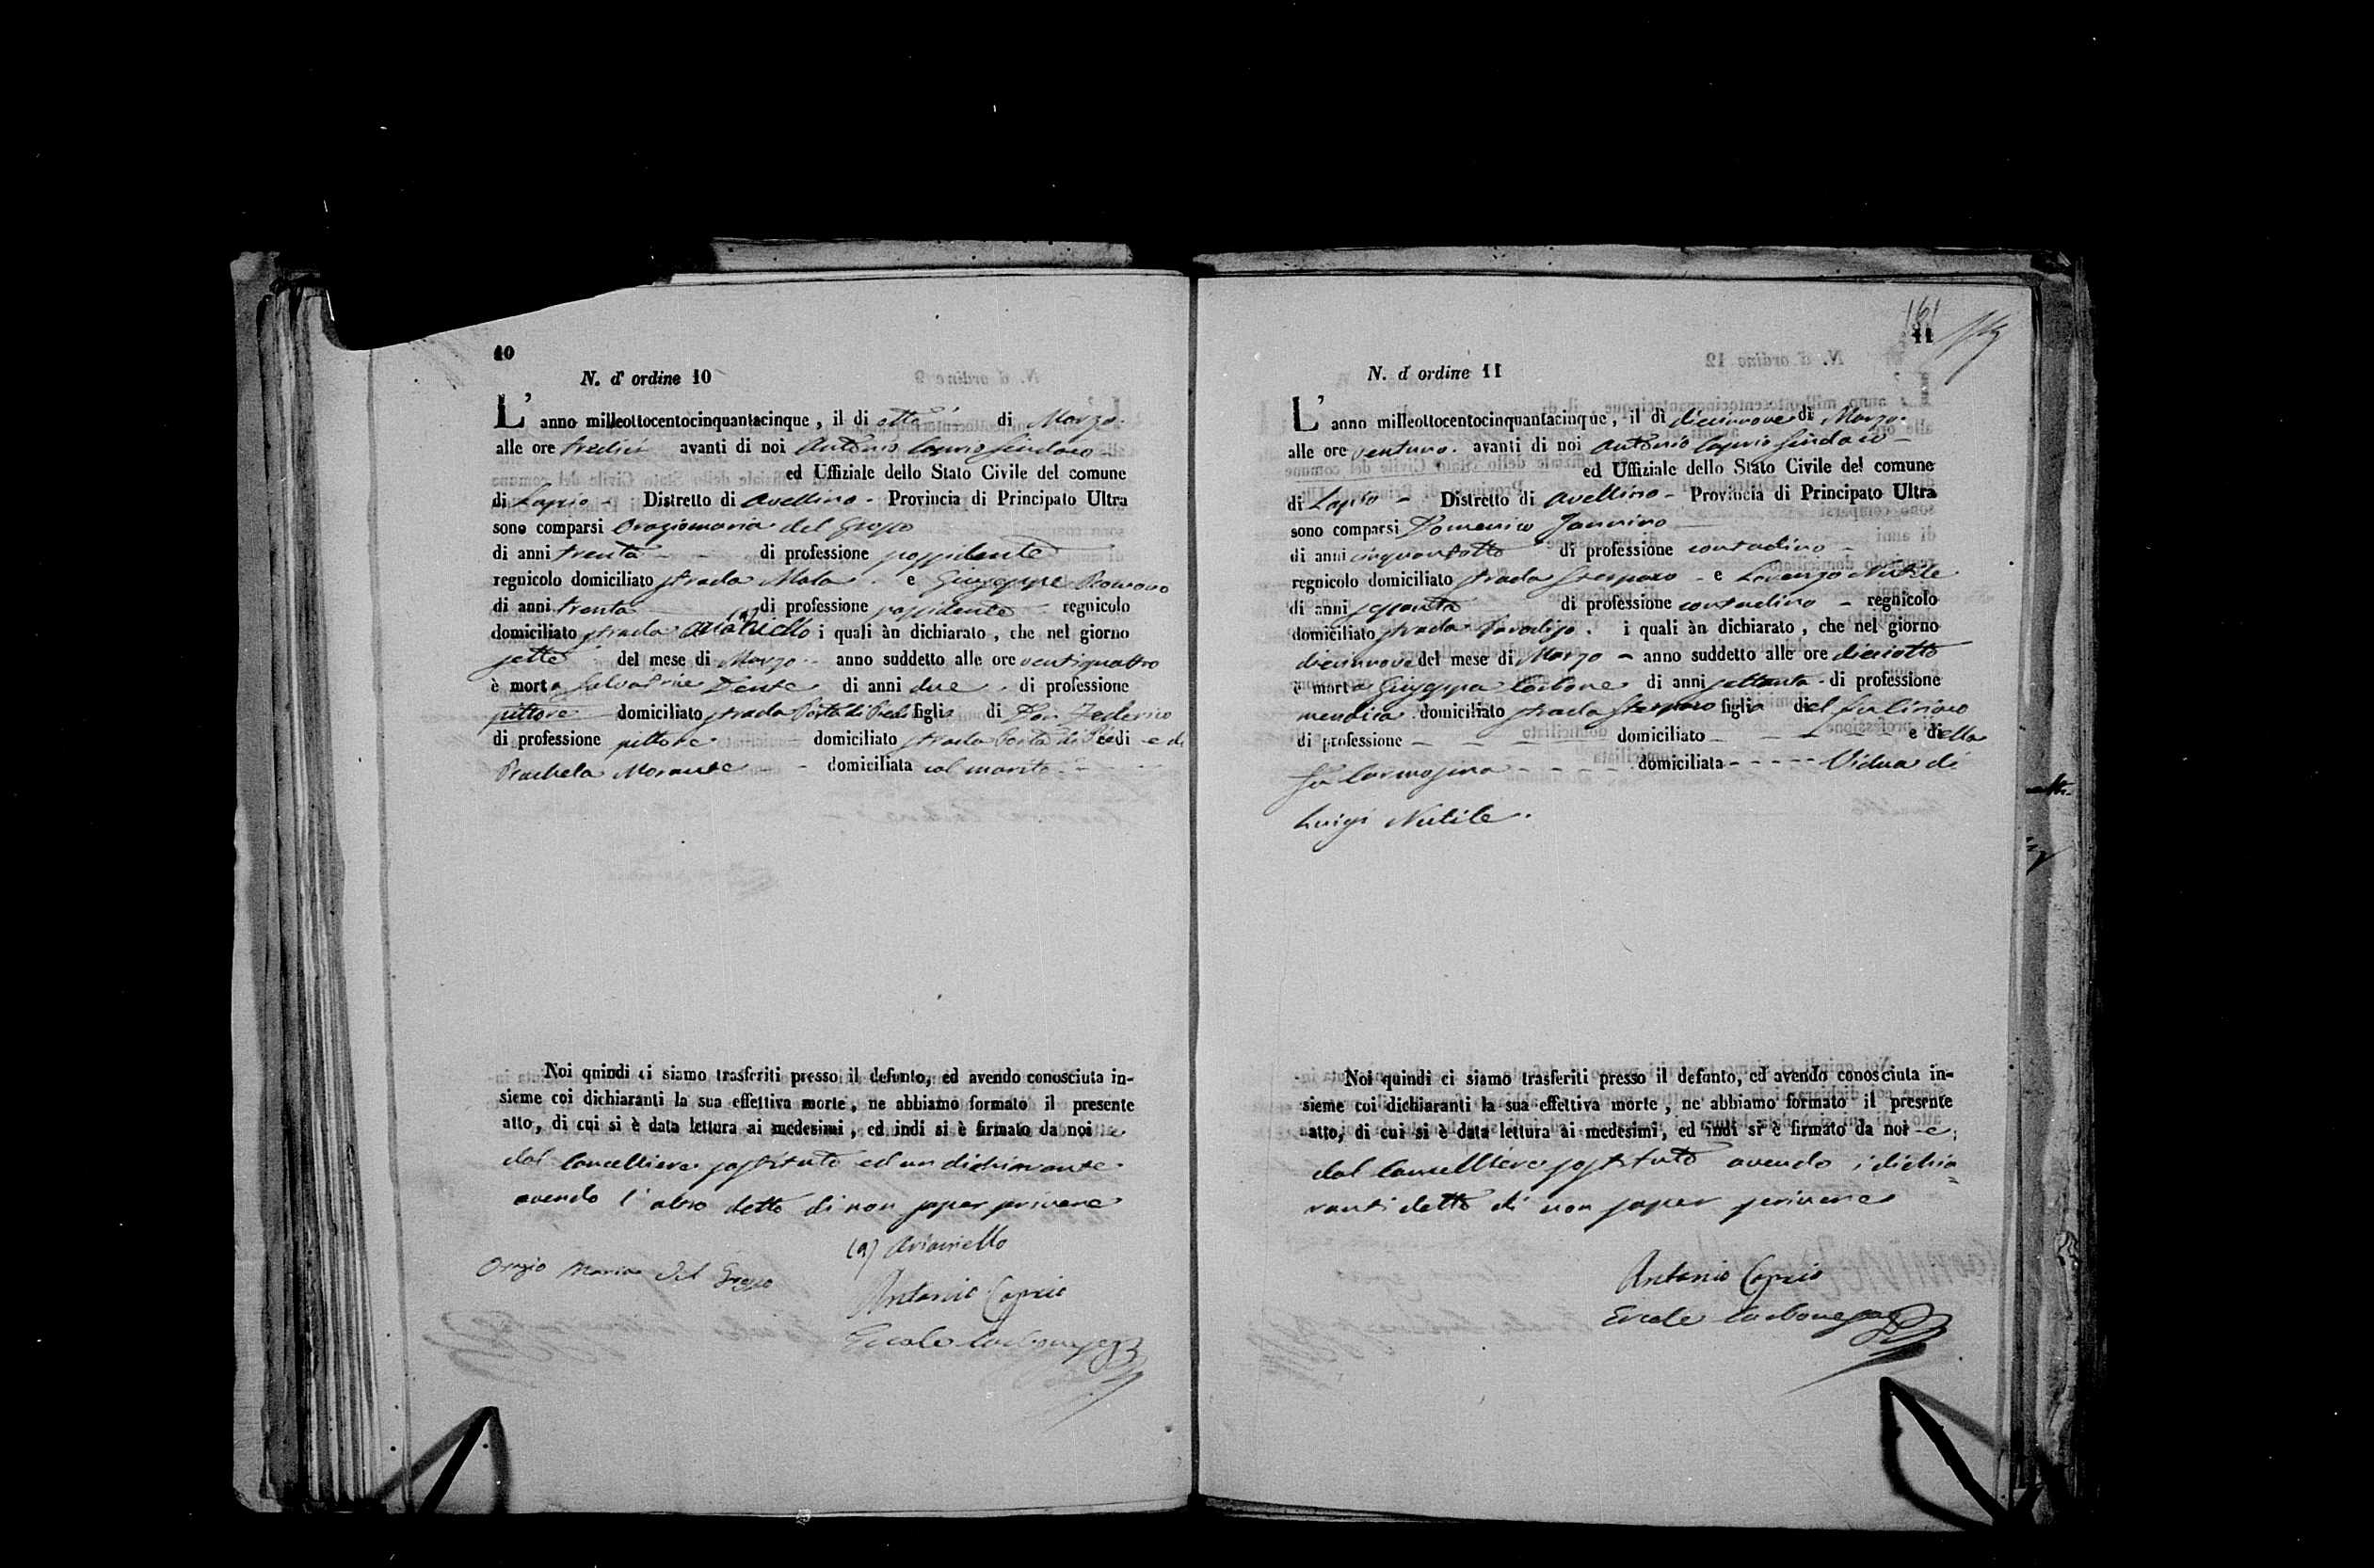 10
N. d' ordine 10
L' anno milleottocentocinquantacinque, il di otto di Marzo
alle ore tredici avanti di noi Antonio Caprio Sindaco
ed Uffiziale dello Stato Civile del comune
di Lapio - Distretto di Avellino - Provincia di Principato Ultra
sono comparsi Oraziomaria del Grosso
di anni trenta di professione possidente
regnicolo domiciliato strada Mala e Giuseppe Romano
di anni trenta di professione possidente regnicolo
domiciliato strada (a) i quali àn dichiarato, che nel giorno
sette del mese di Marzo anno suddetto alle ore ventiquattro
è morta Dente di anni due di professione
pittore domiciliato strada Porta di Piedi figlia di Don Federico
di professione pittore domiciliato strada Porta di Piedi e di
Rachela Morante domiciliata col marito
Noi quindi ci siamo trasferiti presso il defunto, ed avendo conosciuta in-
sieme coi dichiaranti la sua effettiva morte, ne abbiamo formato il presente
atto, di cui si è data lettura ai medesimi, ed indi si è firmato da noi e
dal Cancelliere sostituto ed un dichiarante
avendo l' altro detto di non saper scrivere
(a) Arianiello
Orazio Maria Del Grosso
Antonio Caprio
Ercole Carbone
11
N. d' ordine 11
L' anno milleottocentocinquantacinque, il dì diecinnove di Marzo
alle ore ventuno avanti di noi Antonio Caprio Sindaco
ed Uffiziale dello Stato Civile del comune
di Lapio - Distretto di Avellino - Provincia di Principato Ultra
sono comparsi Domenico Jannino
di anni cinquantotto di professione contadino
regnicolo domiciliato strada e Lorenzo Nutile
di anni di professione contadino - regnicolo
domiciliato strada Paradiso i quali àn dichiarato, che nel giorno
diecinnove del mese di Marzo - anno suddetto alle ore dieciotto
è morta Giuseppa Carbone di anni settanta di professione
mendica domiciliato strada figlia del fu Ciriaco
di professione domiciliato e della
fu Carmosina domiciliata Vidua di
Luigi Nutile.
Noi quindi ci siamo trasferiti presso il defunto, ed avendo conosciuta in-
sieme coi dichiaranti la sua effettiva morte, ne abbiamo formato il presente
atto, di cui si è data lettura ai medesimi, ed indi si è firmato da noi e
dal Cancelliere sostituto avendo i dichia=
ranti detto di non saper scrivere
Antonio Caprio
Ercole Carbone